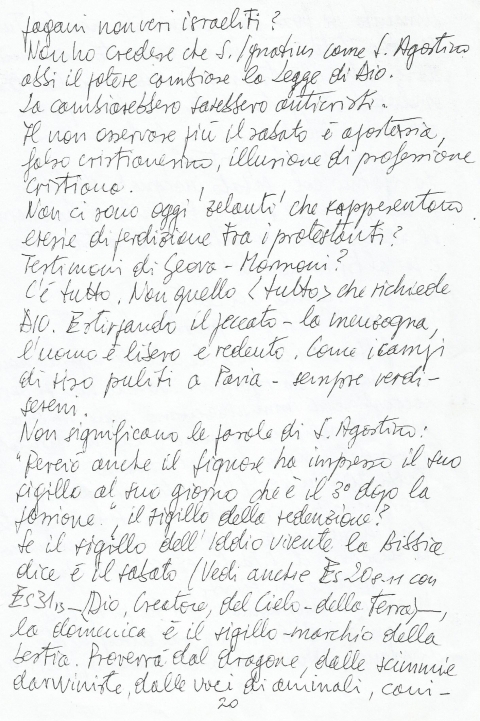 pagani non veri israeliti?
Non ho credere che S. Ignatius come S. Agostino
abbi il potere cambiare la Legge di Dio.
La cambiarebbero sarebbero anticristi.
Il non osservare più il sabato è apostasia,
falso cristianesimo, illusione di professione
cristiana.
Non ci sono oggi 'zelanti' che rappresentano
eresie di perdizione tra i protestanti?
Testimoni di Geova - Mormoni?
C'è tutto. Non quello <tutto> che richiede
DIO. Estirpando il peccato - la menzogna,
l'uomo è libero e redento. Come i campi
di riso puliti a Pavia - sempre verdi -
sereni.
Non significano le parole di S. Agostino:
"Perciò anche il Signore ha impresso il suo
sigillo al suo giorno che è il 3º dopo la
passione.", il sigillo della redenzione?
Se il sigillo dell'Iddio vivente la Bibbia
dice è il sabato (Vedi anche Es 20 8-11 con
Es 31 13 - (Dio, Creatore, del Cielo - della Terra) -,
la domenica è il sigillo - marchio della
bestia. Proverrà dal dragone, dalle scimmie
darwiniste, dalle voci di animali, comi -
20